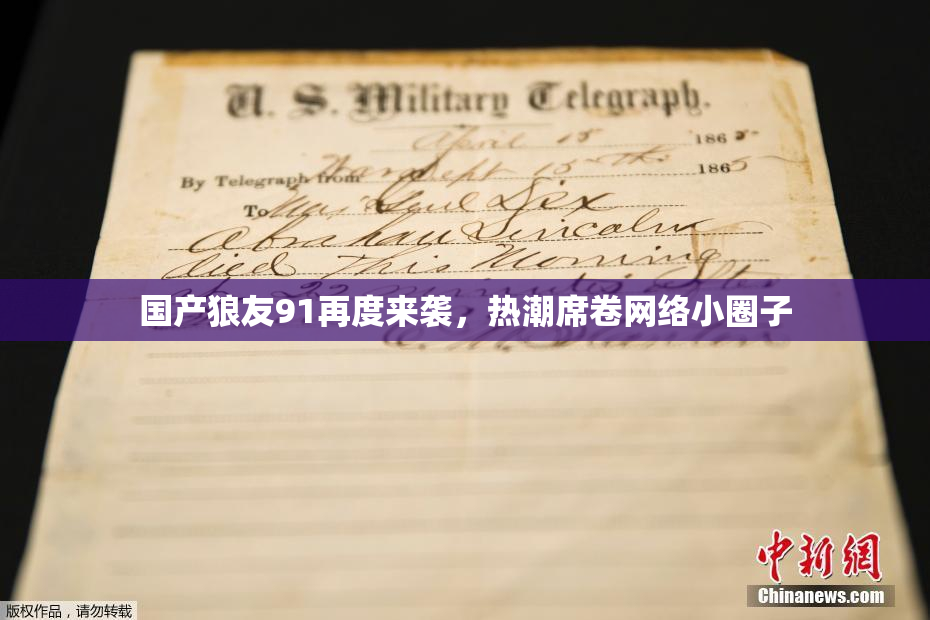 U. S. Military Telegraph.
April 15 1865
By Telegraph from War Dept 15th 1865
To Maj Genl Dix
Abraham Lincoln
died This Morning
at 22 minutes after
国产狼友91再度来袭，热潮席卷网络小圈子
E. M. Stanton
中新網
Chinanews.com
版权作品，请勿转载